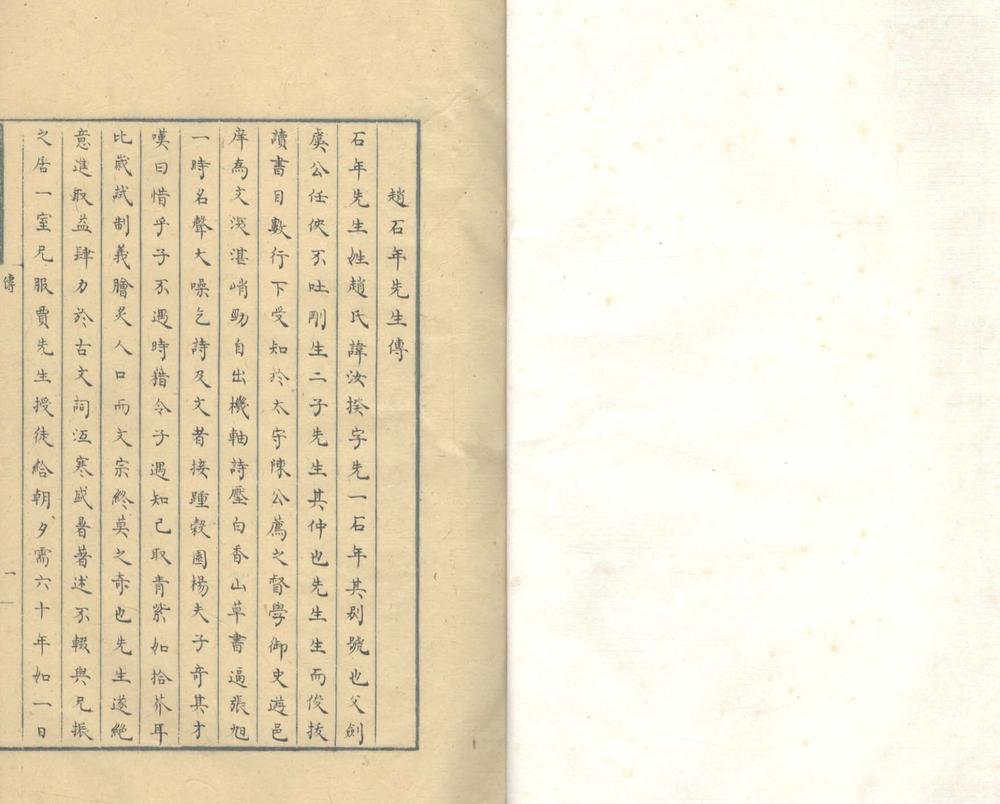 趙石年先生傳
石年先生姓趙氏諱汝揆字先一石年其別號也父劍
虞公任俠不吐剛生二子先生其仲也先生生而俊拔
讀書目數行下受知於太守陳公薦之督學御史遊邑
庠為文淡湛峭勁自出機軸詩壓白香山草書逼張旭
一時名聲大噪乞詩及文者接踵穀園楊夫子奇其才
嘆曰惜乎子不遇時猶令子遇知己取青紫如拾芥耳
比歲試制義膾炙人口而文宗終莫之奇也先生遂絕
意進取益肆力於古文詞沍寒盛暑著述不輟與兄振
之居一室兄服賈先生授徒給朝夕需六十年如一日
傳
一